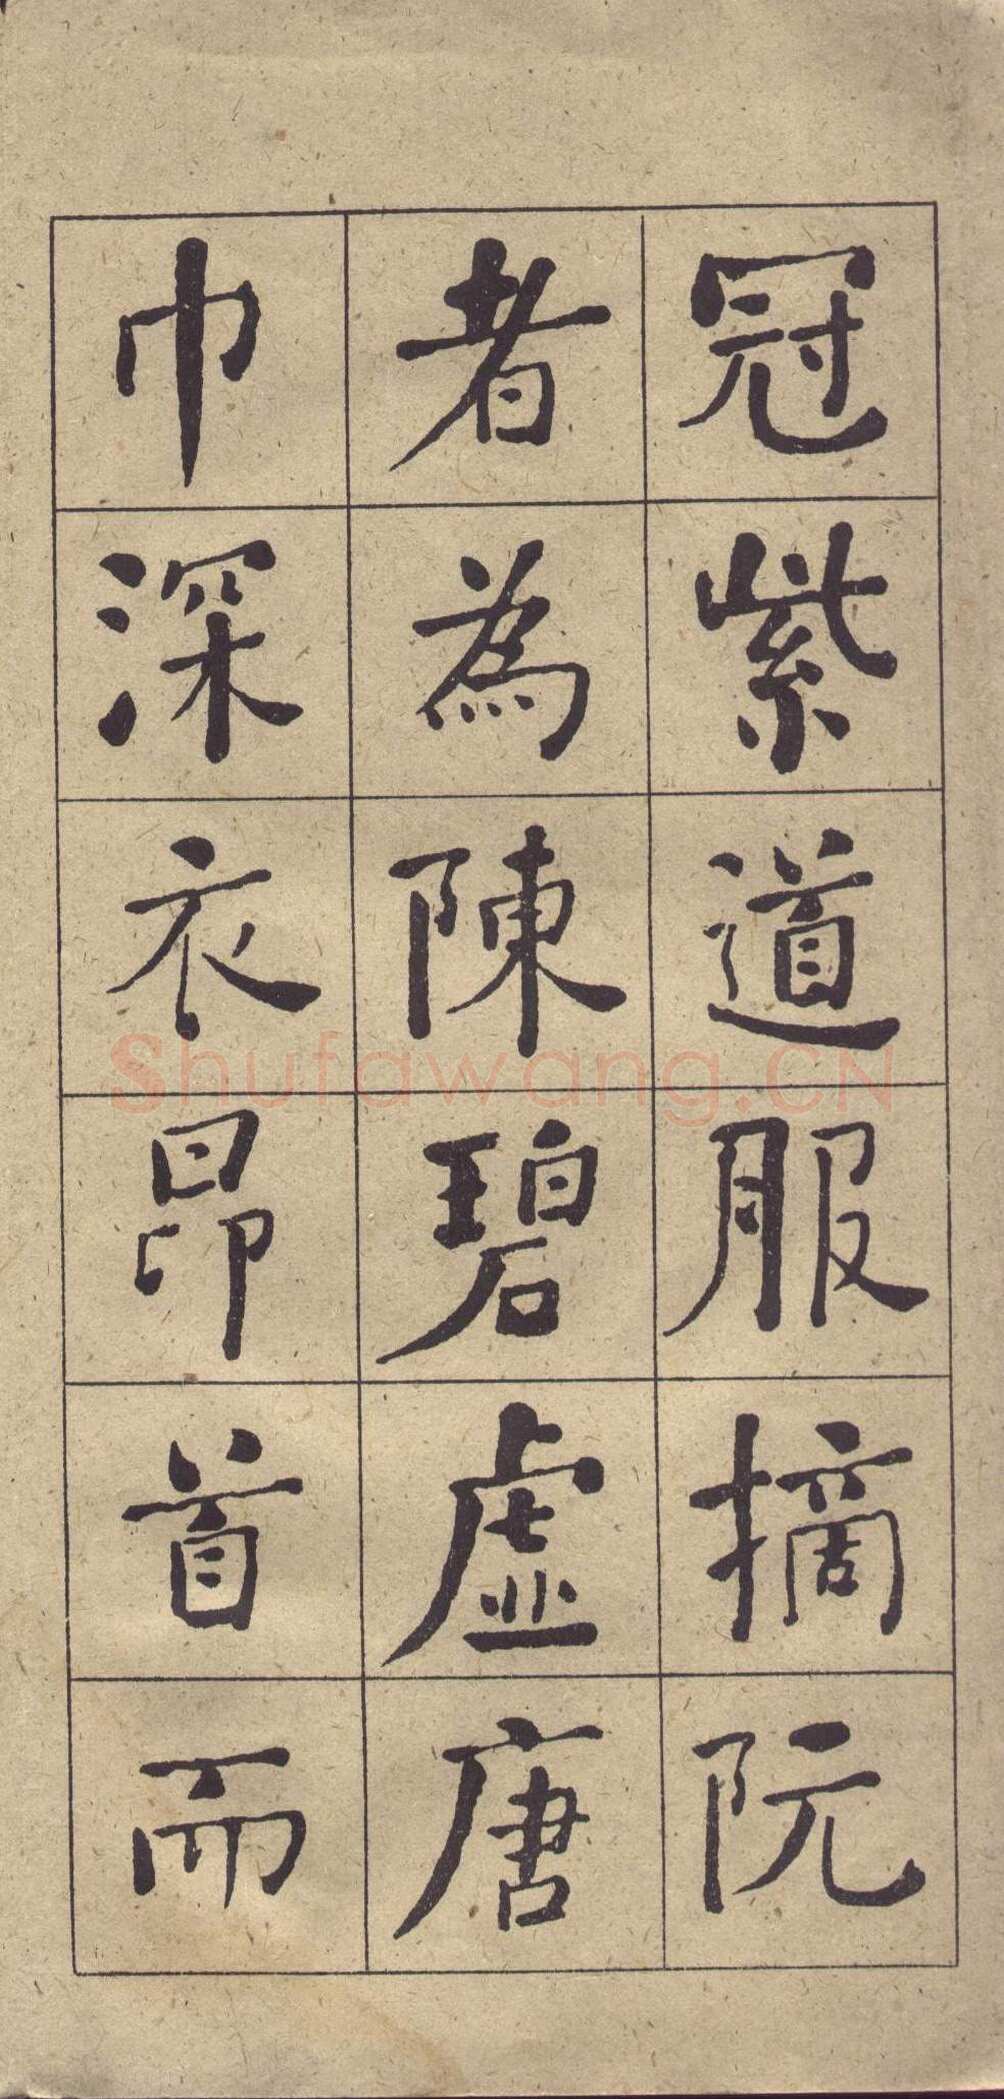 冠紫道服摘阮
者為陳碧虛唐
巾深衣昂首而
Shufawang.CN